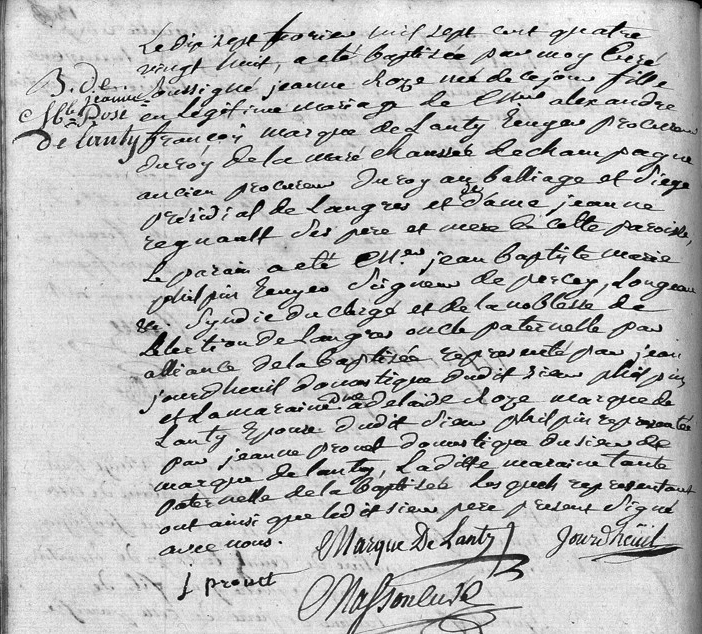 Le dix sept fevrier mil sept cent quatre
vingt huit, a eté baptisée par moy curé
soussigné jeanne Roze née de ce jour fille
B. de
jeanne
Roze
De Lanty
en Légitime mariage de Mre alexandre
françois marque de Lanty Ecuyer procureur
Du roy de la maréchaussée de champagne
ancien procureur Du roy au balliage et Siege
présidial de Langres et de dame jeanne
regnault Ses pere et mere de cette paroisse,
Le parain a eté Mre jean baptiste marie
philpin Ecuyer Seigneur de percey, Longeau
&c. Syndic du clergé et de la noblesse de
L'election de Langres oncle paternelle par
alliance de la baptisée representé par jean
jourdheuil domestique dudit sieur philpin
et La maraine dme adelaide Roze marque de
Lanty Epouse dudit Sieur philpin representée
par jeanne prout domestique du sieur de
marque de Lanty, Laditte maraine tante
paternelle de la baptisée Les quels representant
ont ainsi que ledit sieur pere present Signé
avec nous.
Marque De Lanty
Jourdheüil
J prout